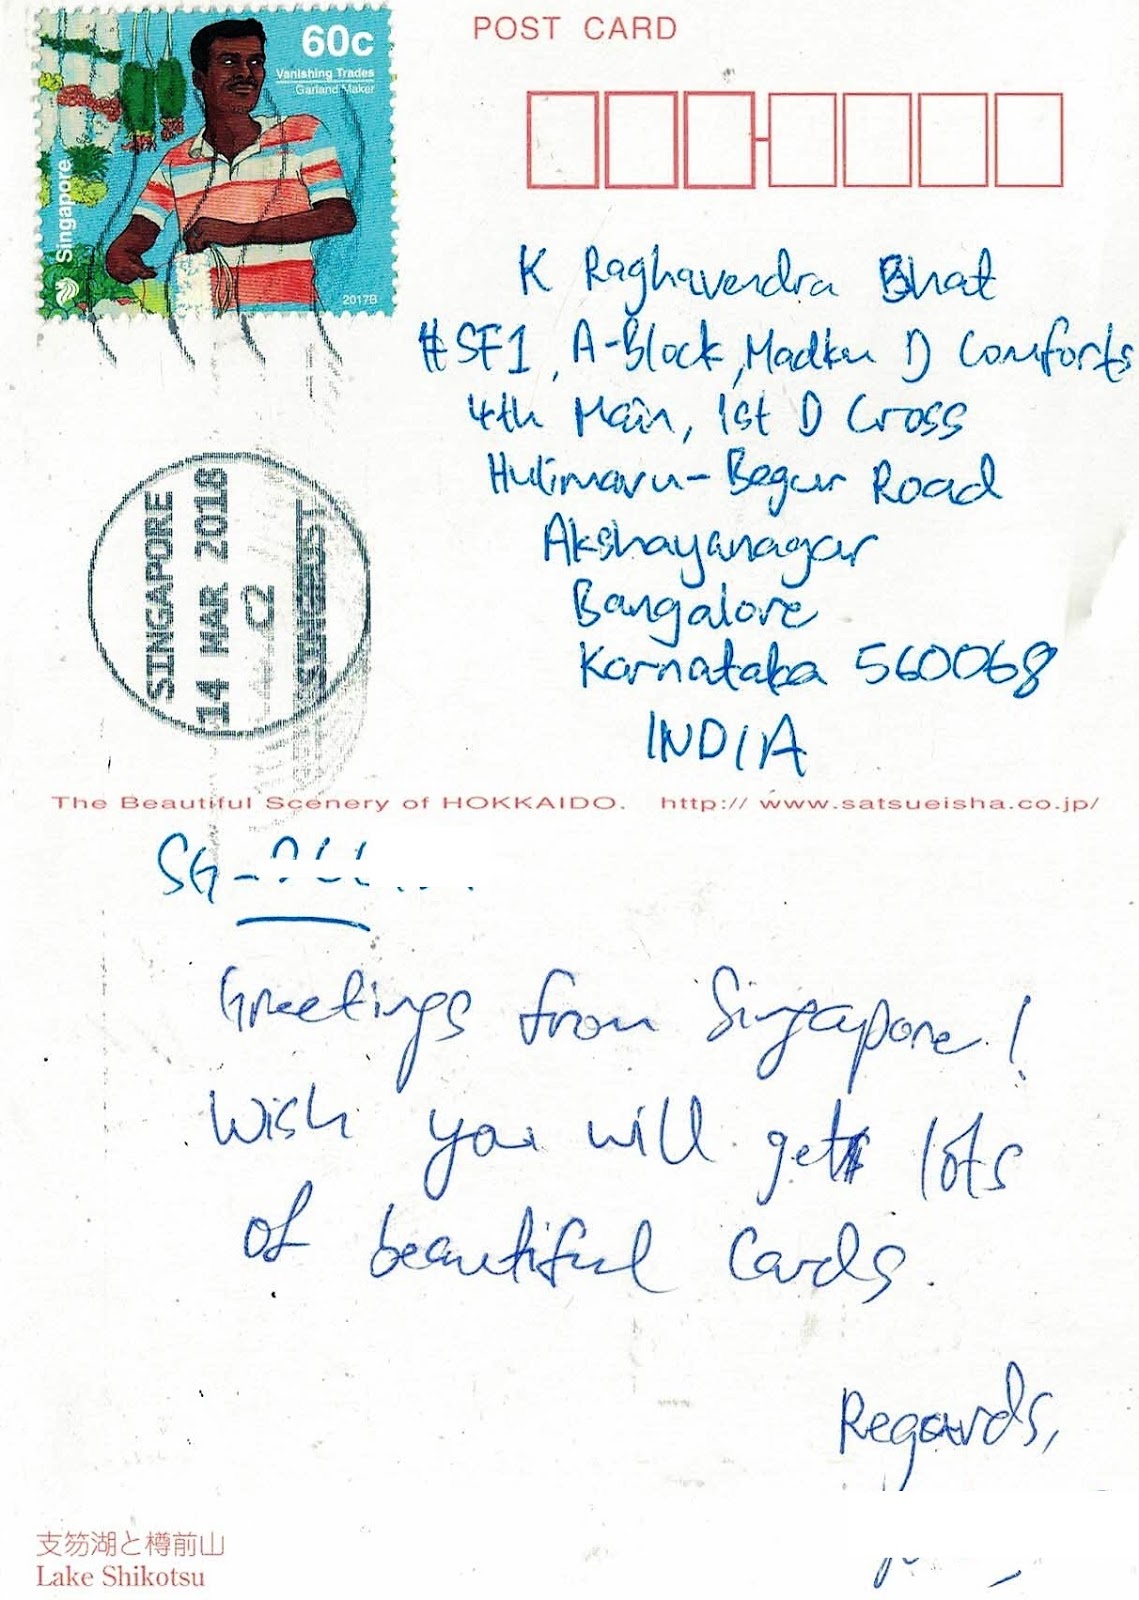 POST CARD
60c
Vanishing Trades
Garland Maker
Singapore
2017B
K Raghavendra Bhat
#SF1, A-Block, Madhu D Comforts
4th Main, 1st D Cross
Hulimavu-Begur Road
Akshayanagar
Bangalore
Karnataka 560068
INDIA
SINGAPORE
14 MAR 2018
C2
SINGPOST
The Beautiful Scenery of HOKKAIDO. http://www.satsueisha.co.jp/
SG-
Greetings from Singapore!
Wish you will get lots
of beautiful cards.
Regards,
支笏湖と樽前山
Lake Shikotsu